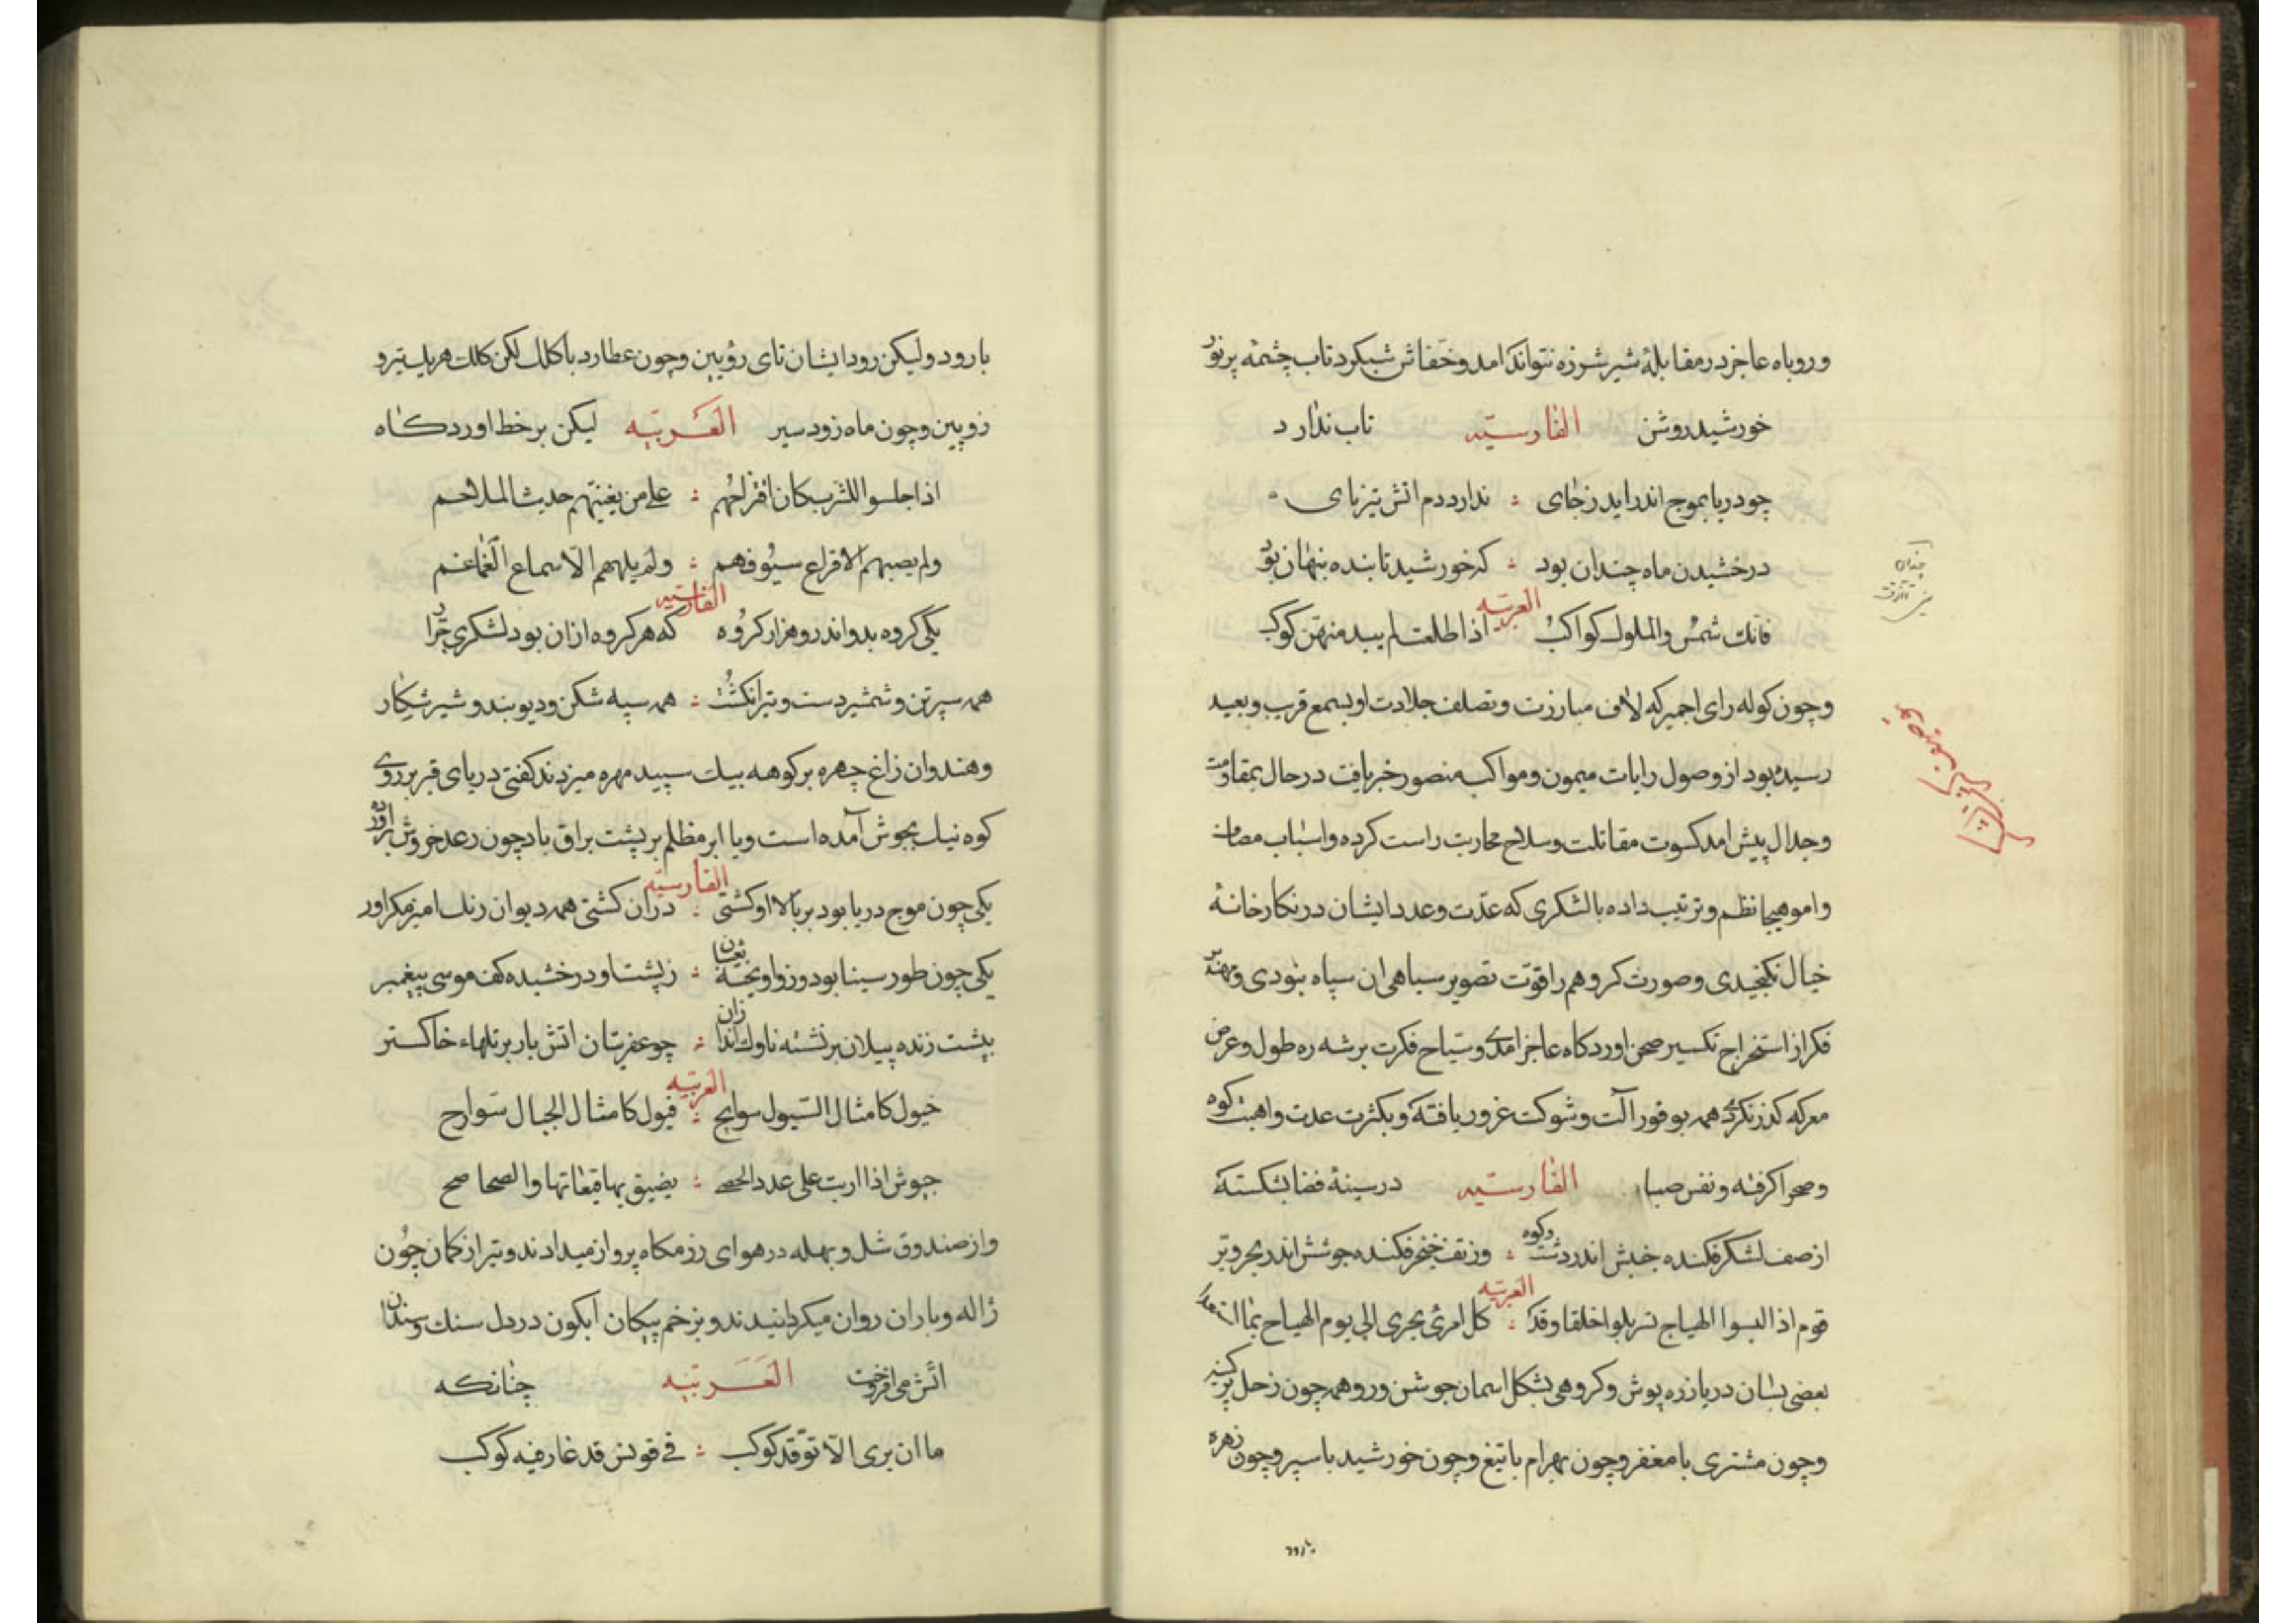 وروباه عاجز در مقابلهٔ شیر شرزه نتواند امد و خفاش شبکرد تاب چشمه پر نور
خورشید روشن الفارسیّه تاب ندارد
چو دریا بموج اندر اید ز جای ندارد دم اتش تیز نای
درخشیدن ماه چندان بود که خورشید تابنده بنهان بود
العربیّه
فانک شمس والملوک کواکب اذا طلعت لم یبد منهن کوکب
وچون کوله رای اجمیر که لاف مبارزت و تصلف جلادت او بسمع قریب و بعید
رسیده بود از وصول رایات میمون و مواکب منصور خبر یافت در حال بمقاومت
وجدال پیش امد کسوت مقاتلت و سلاح محاربت راست کرده و اسباب مصاف
وامور هیجا نظم و ترتیب داده با لشکری که عدّت و عدد ایشان در نکارخانهٔ
خیال نکنجیدی وصورت کر وهم را قوّت تصویر سیاهی ان سپاه بنودی و مهندس
فکر از استخراج تکسیر صحن اوردکاه عاجز امدی و سیاح فکرت برشه ره طول و عرض
معرکه کذر نکردی همه بوفور آلت و شوکت غرور یافته و بکثرت عدت و اهبت کوه
وصحرا کرفته و نفس صبا الفارسیّه در سینهٔ فضا بشکسته
از صف لشکر فکنده جنبش اندر دشت وکوه وز تف خنجر فکنده جوشش اندر بحر و بر
العربیّه
قوم اذا لبسوا الهیاج تسربلوا اخلقا وقدا کل امرئ یجری الی یوم الهیاج بما استعدا
بعضی بسان دریا زره پوش و کروهی بشکل اسمان جوشن ور و همه چون زحل پر کینه
وچون مشتری با مغفر و چون بهرام با تیغ و چون خورشید با سپر و چون زهره
العربیّه
بارود ولیکن رود ایشان نای رؤیین وچون عطارد با کلک لکن کلک هر یک تیر و
زوپین و چون ماه زود سیر العربیّه لیکن بر خط اوردکاه
اذا جلسوا للشرب کان اقتراحُهم علی من یغنیهم حدیث الملاحم
ولم یصبهم الا قراع سیُوفهم ولم یلههم الّا سماع الغماغم
الفارسیّه
یکی کروه بدو اندرو هزار کرُوه که هر کروه ازان بود لشکری جرّار
همه سپر تن و شمشیر دست و تیر انکشت همه سپه شکن و دیو بند و شیر شکار
وهندوان زاغ چهره بر کوهه بیک سپید مهره میزدند کفتی دریای قیر بر روی
کوه نیل بجوش آمده است و یا ابر مظلم بر پشت براق باد چون رعد خروش براورده
الفارسیّه
یکی چون موج دریا بود بر بالا او کشتی دران کشتی همه دیوان رنک امیز مکر اور
یکی چون طور سینا بود وزو اویخته ثعبان ز پشت او درخشیده کف موسی پیغمبر
بپشت زنده پیلان بر نشسته ناوک اندازان چو عفریتان اتش بار بر تلهاء خاکستر
العربیّه
خیول کامثال السّیول سوابح فیول کامثال الجبال سوارح
جیوش اذا اربت علی عدد الحصی یضیق بها قیعانها والصحاصح
واز صندوق شل و بهله در هوای رزمکاه پرواز میدادند و تیر از کمان چُون
ژاله و باران روان میکردانیدند و بزخم پیکان ابکون در دل سنک و سندان
اتش می افروخت العَرَبیّه چنانکه
ما ان یری الّا توقّد کوکب فی قونس قد غار فیه کوکب